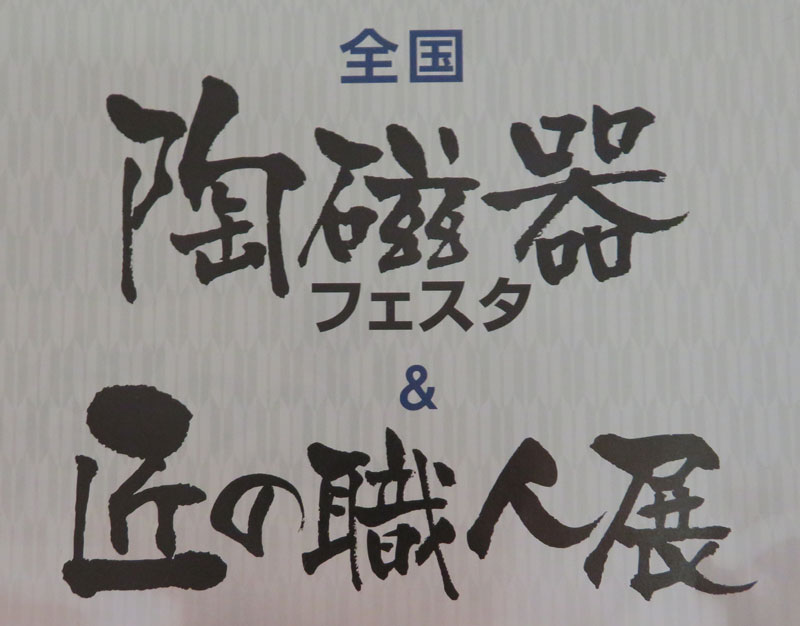 全国
陶磁器
フェスタ
&
匠の職人展